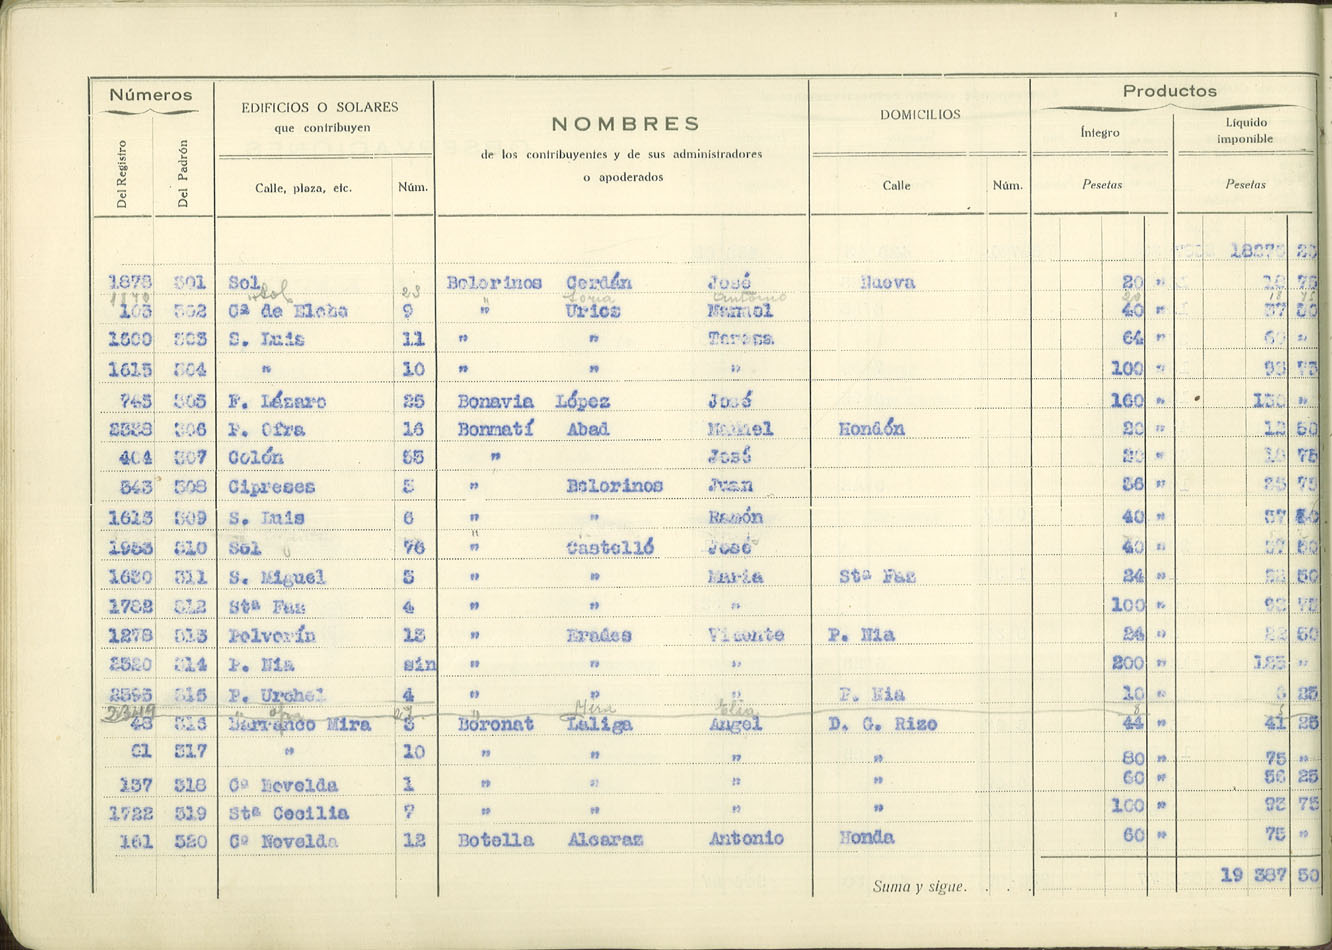 Números EDIFICIOS O SOLARES NOMBRES DOMICILIOS Productos
que contribuyen de los contribuyentes y de sus administradores Íntegro Líquido imponible
o apoderados
Del Registro Del Padrón Calle, plaza, etc. Núm. Calle Núm. Pesetas Pesetas
1878 301 Sol Bolorinos Cerdán José Nueva 20 " 18 75
Sol 23 " Soria Antonio 20 18 75
103 302 Cª de Elche 9 " Urios Manuel 40 " 37 50
1600 303 S. Luis 11 " " Teresa 64 " 60 "
1615 304 " 10 " " " 100 " 93 75
745 305 P. Lázaro 25 Bonavia López José 160 " 150 "
306 P. Ofra 16 Bonmatí Abad Manuel Hondón 20 " 12 50
404 307 Colón 55 " José 20 " 18 75
543 308 Cipreses 5 " Bolorinos Juan "  75
1613 309 S. Luis 6 " " Ramón 40 " 37 50
1953 310 Sol 76 " Castelló José 40 " 37 50
1630 311 S. Miguel 5 " " María Stª Faz 24 " 22 50
1782 312 Stª Faz 4 " " " 100 " 93 75
1278 313 Polvorín 13 " Erades Vicente P. Nia 24 " 22 50
2520 314 P. Nia sin " " " 200 " "
2595 315 P. Urchel 4 " " " P. Nia 10 " 25
27 " Mira Elia 8
48 316 Barranco Mira Boronat Laliga Angel D. G. Rizo 44 " 41 25
61 317 " 10 " " " " 80 " 75 "
137 318 Cº Novelda 1 " " " " 60 " 56 25
1722 319 Stª Cecilia 7 " " " " 100 " 93 75
161 320 Cº Novelda 12 Botella Alcaraz Antonio Honda 60 " 75 "
Suma y sigue. . . . 19 387 50